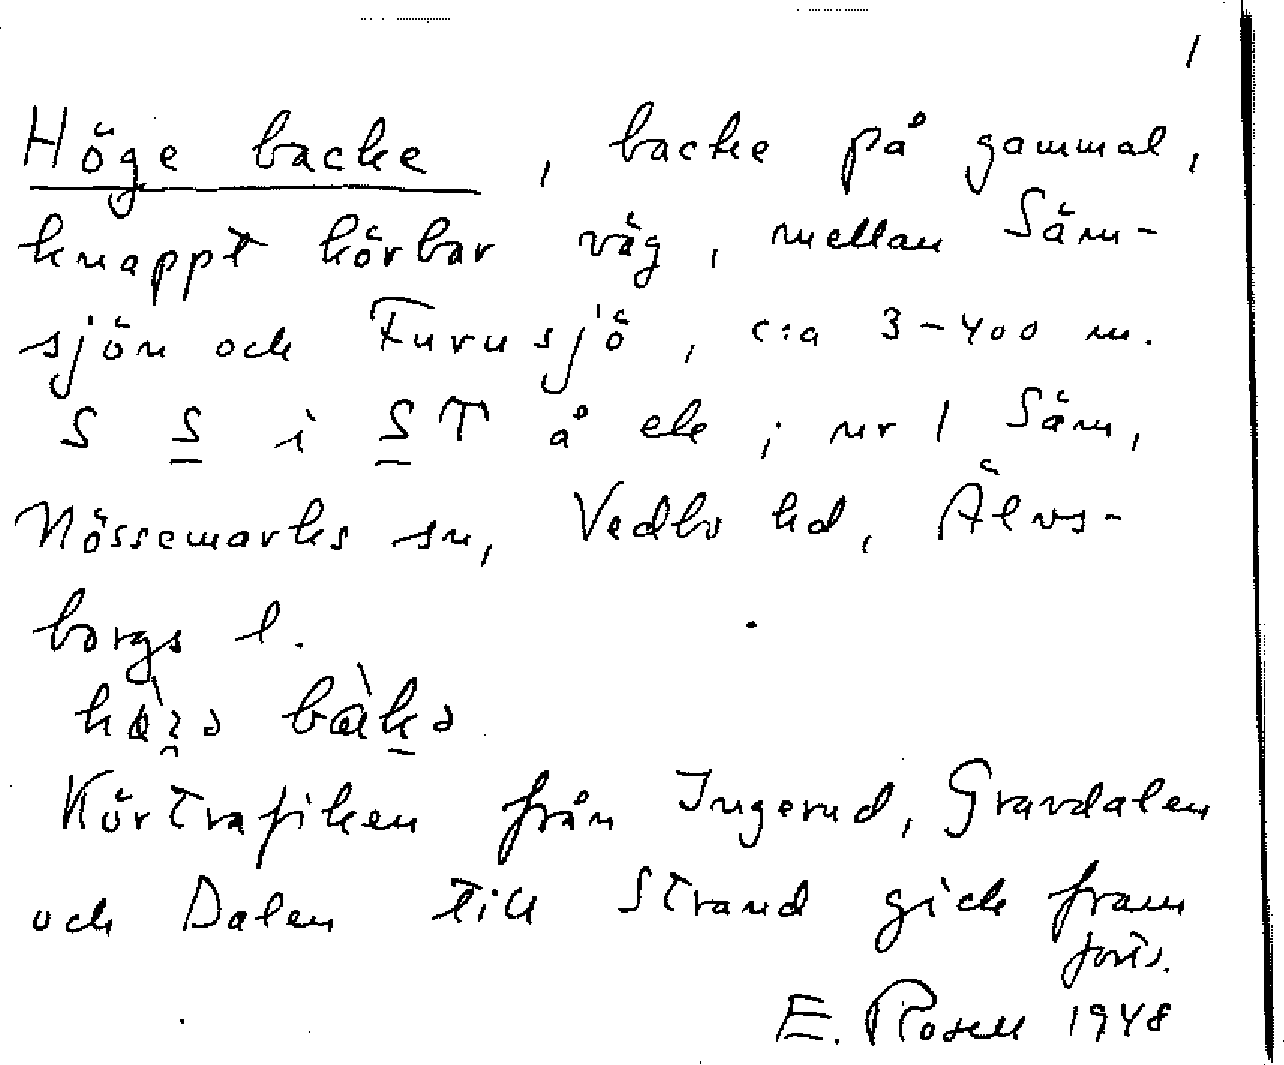 1
Höge backe, backe på gammal,
knappt körbar väg, mellan Säm-
sjön och Furusjö, c:a 3-400 m.
S S i ST å ek; nr 1 Säm,
Nössemarks sn, Vedbo hd, Älvs-
borgs l.
Körtrafiken från Ingerud, Gravdalen
och Dalen till Strand gick fram
forts.
E. Rosell 1948